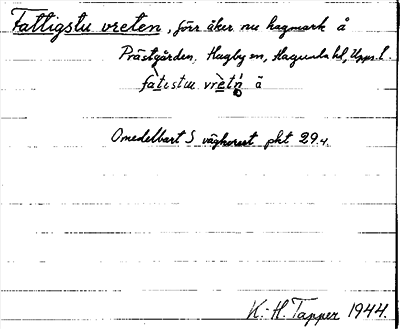 Fattigstu vreten, förr åker nu hagmark å
Prästgården, Hagby sn, Hagunda hd, Upps. l.
fatistu vretn̥ ä
Omedelbart S vägkorset pkt 29.4.
K.-H. Tapper 1944.